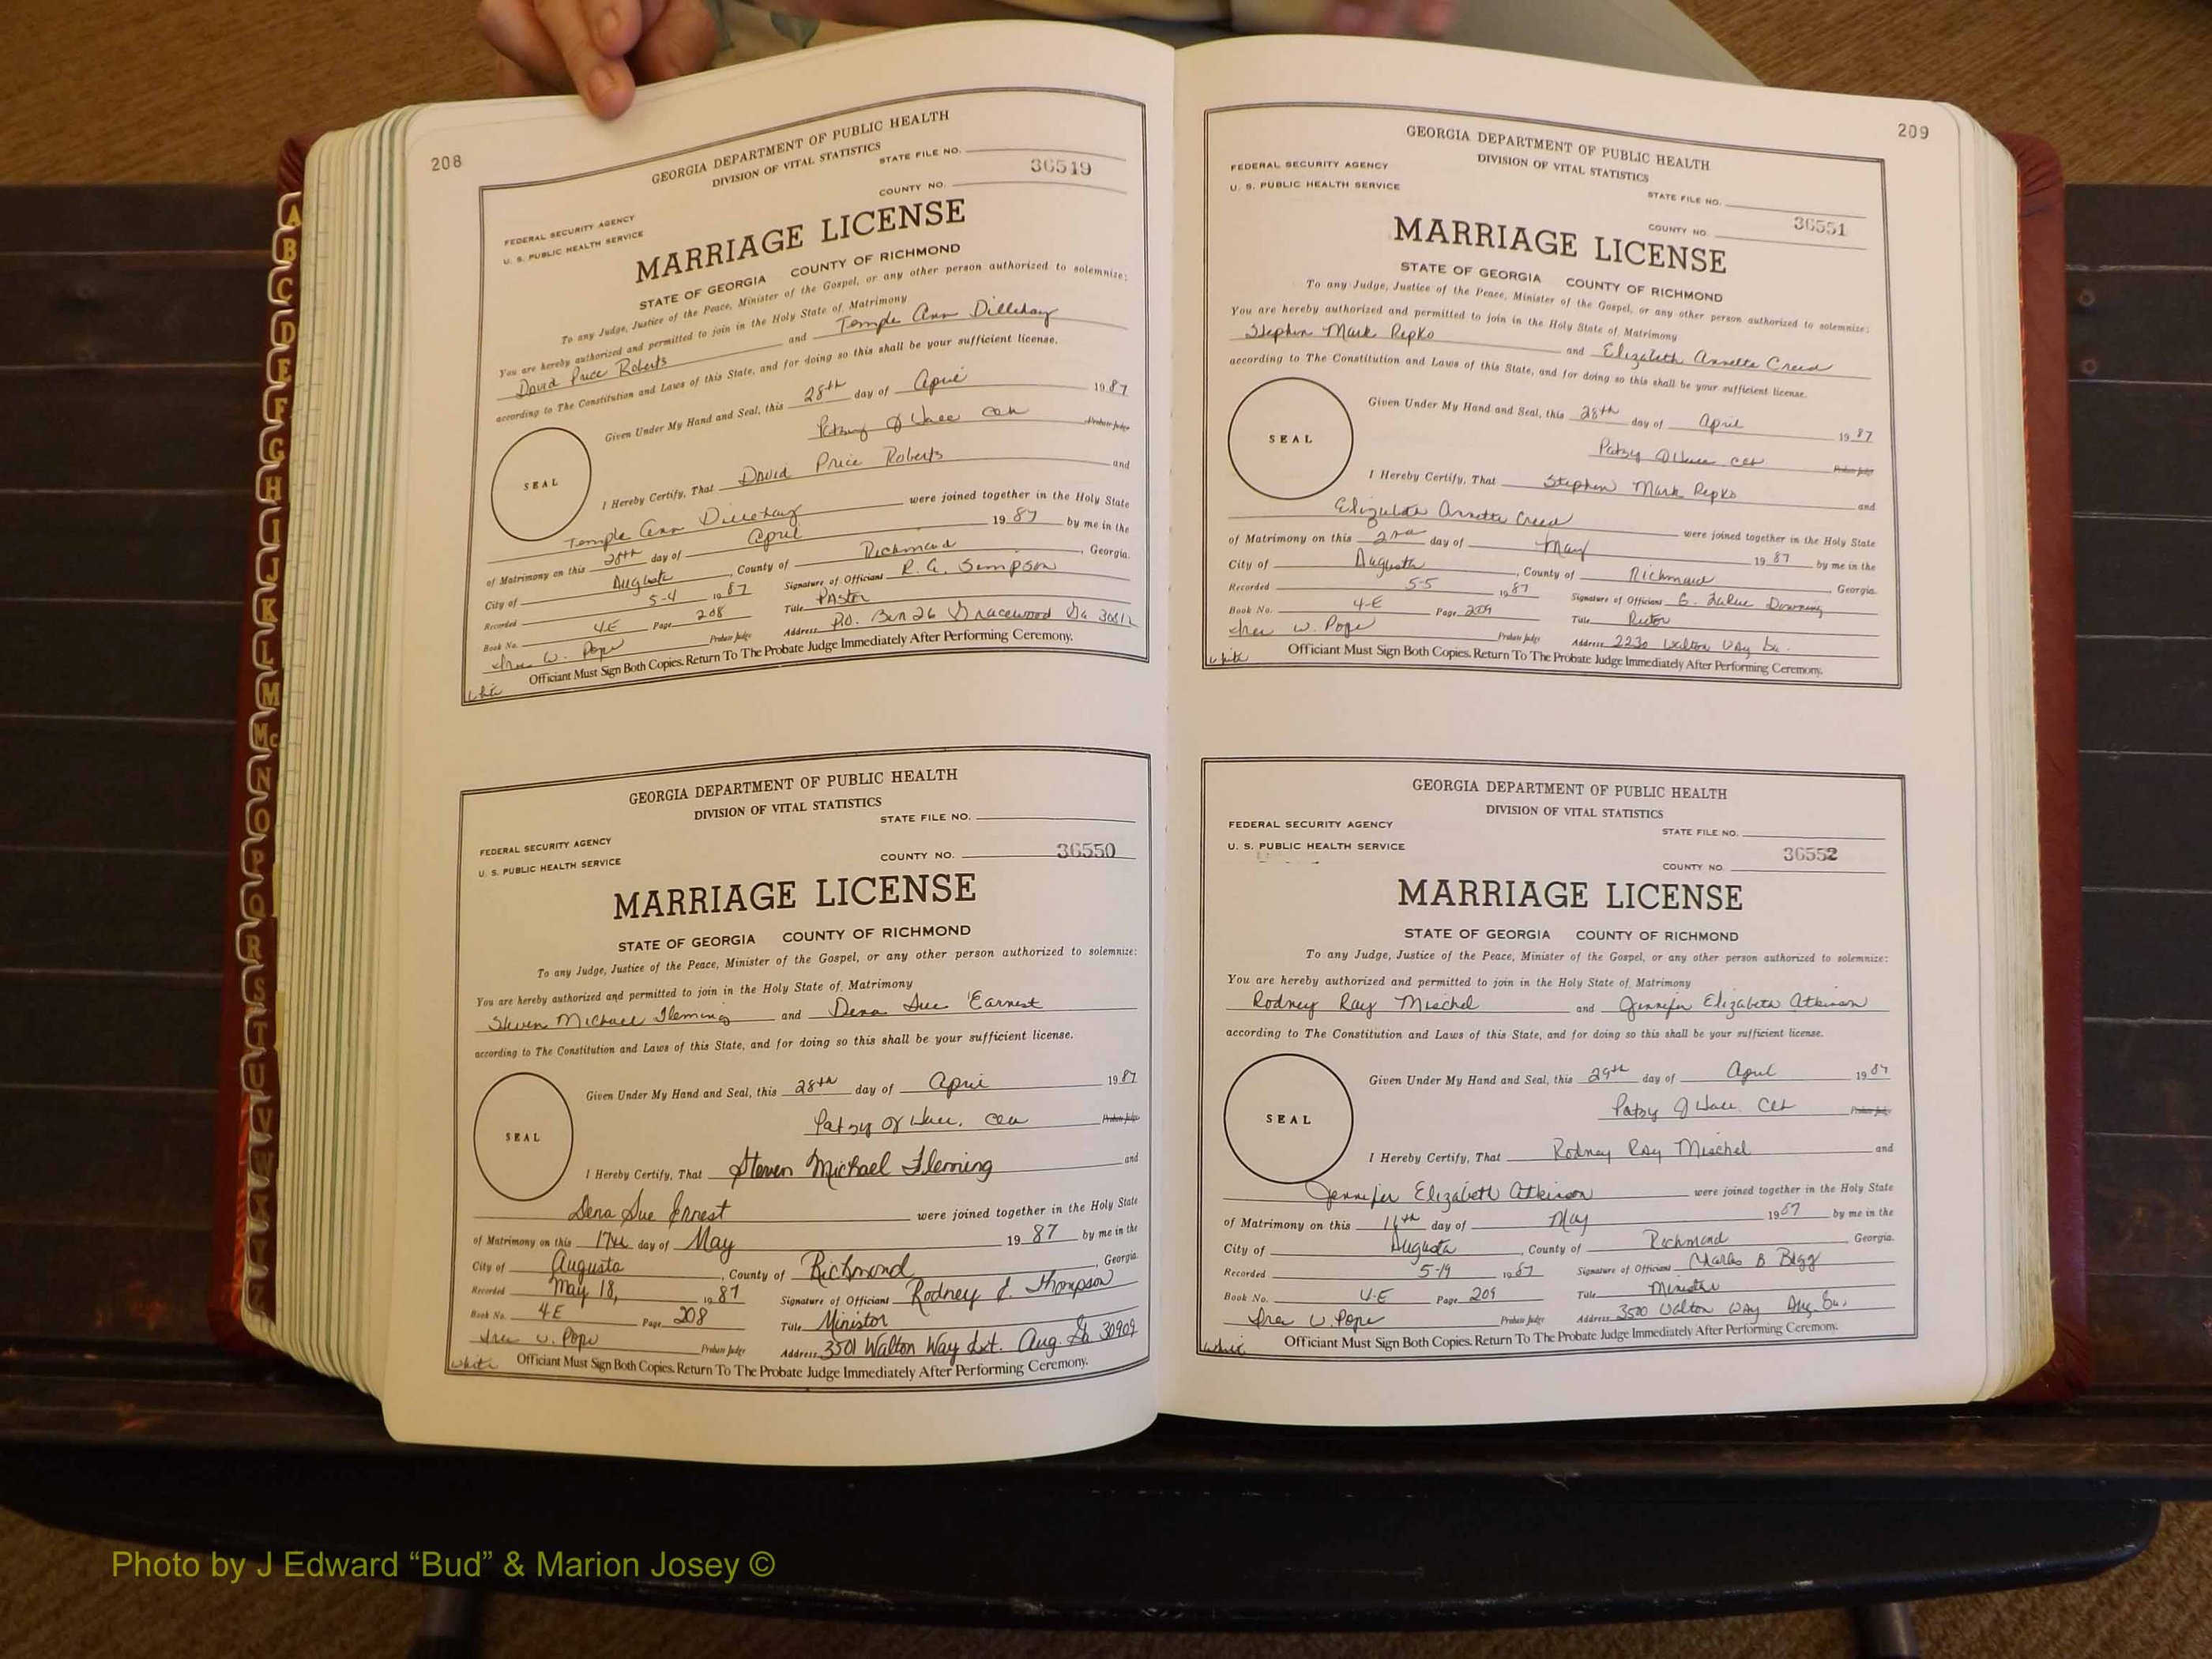 208
GEORGIA DEPARTMENT OF PUBLIC HEALTH
DIVISION OF VITAL STATISTICS
STATE FILE NO.
36519
COUNTY NO.
FEDERAL SECURITY AGENCY
U. S. PUBLIC HEALTH SERVICE
MARRIAGE LICENSE
STATE OF GEORGIA COUNTY OF RICHMOND
To any Judge, Justice of the Peace, Minister of the Gospel, or any other person authorized to solemnize:
You are hereby authorized and permitted to join in the Holy State of Matrimony
David Price Roberts and Temple Ann Dillehay
according to The Constitution and Laws of this State, and for doing so this shall be your sufficient license.
Given Under My Hand and Seal, this 28th day of April 1987
Patsy Probate Judge
SEAL
I Hereby Certify, That David Price Roberts and
Temple Ann Dillehay were joined together in the Holy State
of Matrimony on this 28th day of April 1987 by me in the
City of Augusta, County of Richmond, Georgia.
Recorded 5-4 1987 Signature of Officiant R. G. Simpson
Book No. 4-E Page 208 Title Pastor
W. Pope Probate Judge Address P.O. Box 26 Gracewood Ga 30812
Officiant Must Sign Both Copies. Return To The Probate Judge Immediately After Performing Ceremony.
White
GEORGIA DEPARTMENT OF PUBLIC HEALTH
DIVISION OF VITAL STATISTICS
STATE FILE NO.
FEDERAL SECURITY AGENCY
U. S. PUBLIC HEALTH SERVICE
COUNTY NO. 36550
MARRIAGE LICENSE
STATE OF GEORGIA COUNTY OF RICHMOND
To any Judge, Justice of the Peace, Minister of the Gospel, or any other person authorized to solemnize:
You are hereby authorized and permitted to join in the Holy State of Matrimony
Steven Michael Fleming and Dena Sue Earnest
according to The Constitution and Laws of this State, and for doing so this shall be your sufficient license.
Given Under My Hand and Seal, this 28th day of April 1987
Patsy Probate Judge
SEAL
I Hereby Certify, That Steven Michael Fleming and
Dena Sue Ernest were joined together in the Holy State
of Matrimony on this 17th day of May 1987 by me in the
City of Augusta, County of Richmond, Georgia.
Recorded May 18, 1987 Signature of Officiant Rodney E. Thompson
Book No. 4E Page 208 Title Minister
W. Pope Probate Judge Address 3501 Walton Way Ext. Aug. Ga 30909
White Officiant Must Sign Both Copies. Return To The Probate Judge Immediately After Performing Ceremony.
209
GEORGIA DEPARTMENT OF PUBLIC HEALTH
DIVISION OF VITAL STATISTICS
FEDERAL SECURITY AGENCY
U. S. PUBLIC HEALTH SERVICE
STATE FILE NO.
COUNTY NO. 36551
MARRIAGE LICENSE
STATE OF GEORGIA COUNTY OF RICHMOND
To any Judge, Justice of the Peace, Minister of the Gospel, or any other person authorized to solemnize:
You are hereby authorized and permitted to join in the Holy State of Matrimony
Stephen Mark Repko and Elizabeth Annette Creed
according to The Constitution and Laws of this State, and for doing so this shall be your sufficient license.
Given Under My Hand and Seal, this 28th day of April 1987
Patsy Probate Judge
SEAL
I Hereby Certify, That Stephen Mark Repko and
Elizabeth Annette Creed were joined together in the Holy State
of Matrimony on this 2nd day of May 1987 by me in the
City of Augusta, County of Richmond Georgia.
Recorded 5-5 1987 Signature of Officiant Downing
Book No. 4-E Page 209 Title Rector
W. Pope Probate Judge Address 2230 Walton Way Ga.
White Officiant Must Sign Both Copies. Return To The Probate Judge Immediately After Performing Ceremony.
GEORGIA DEPARTMENT OF PUBLIC HEALTH
DIVISION OF VITAL STATISTICS
FEDERAL SECURITY AGENCY
STATE FILE NO.
U. S. PUBLIC HEALTH SERVICE
COUNTY NO. 36552
MARRIAGE LICENSE
STATE OF GEORGIA COUNTY OF RICHMOND
To any Judge, Justice of the Peace, Minister of the Gospel, or any other person authorized to solemnize:
You are hereby authorized and permitted to join in the Holy State of Matrimony
Rodney Ray Mischel and Jennifer Elizabeth Atkinson
according to The Constitution and Laws of this State, and for doing so this shall be your sufficient license.
Given Under My Hand and Seal, this 29th day of April 1987
Patsy Probate Judge
SEAL
I Hereby Certify, That Rodney Ray Mischel and
Jennifer Elizabeth Atkinson were joined together in the Holy State
of Matrimony on this day of May 1987 by me in the
City of Augusta, County of Richmond Georgia.
Recorded 5-19 1987 Signature of Officiant Charles B
Book No. 4-E Page 209 Title Minister
W. Pope Probate Judge Address 3500 Walton Way Aug. Ga.
White Officiant Must Sign Both Copies. Return To The Probate Judge Immediately After Performing Ceremony.
A
B
C
D
E
F
G
H
I
J
K
L
M
Mc
N
O
P
Q
R
S
T
U
V
W
X
Y
Z
Photo by J Edward “Bud” & Marion Josey ©